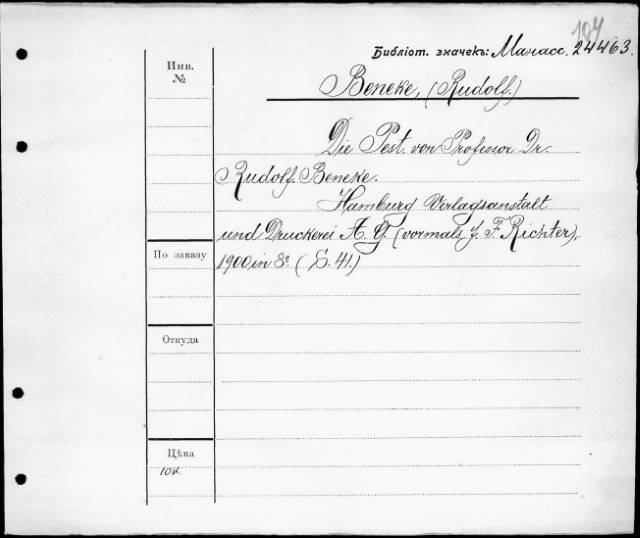 184
Библіот. значекъ: Манасс. 24463.
Инв.
№
Beneke, (Rudolf.)
Die Pest. von Professor Dr.
Rudolf. Beneke.
Hamburg Verlagsanstalt
und Druckerei A. G. (vormals J. F. Richter),
1900, in 8º (S. 41.)
По заказу
Откуда
Цѣна
10к